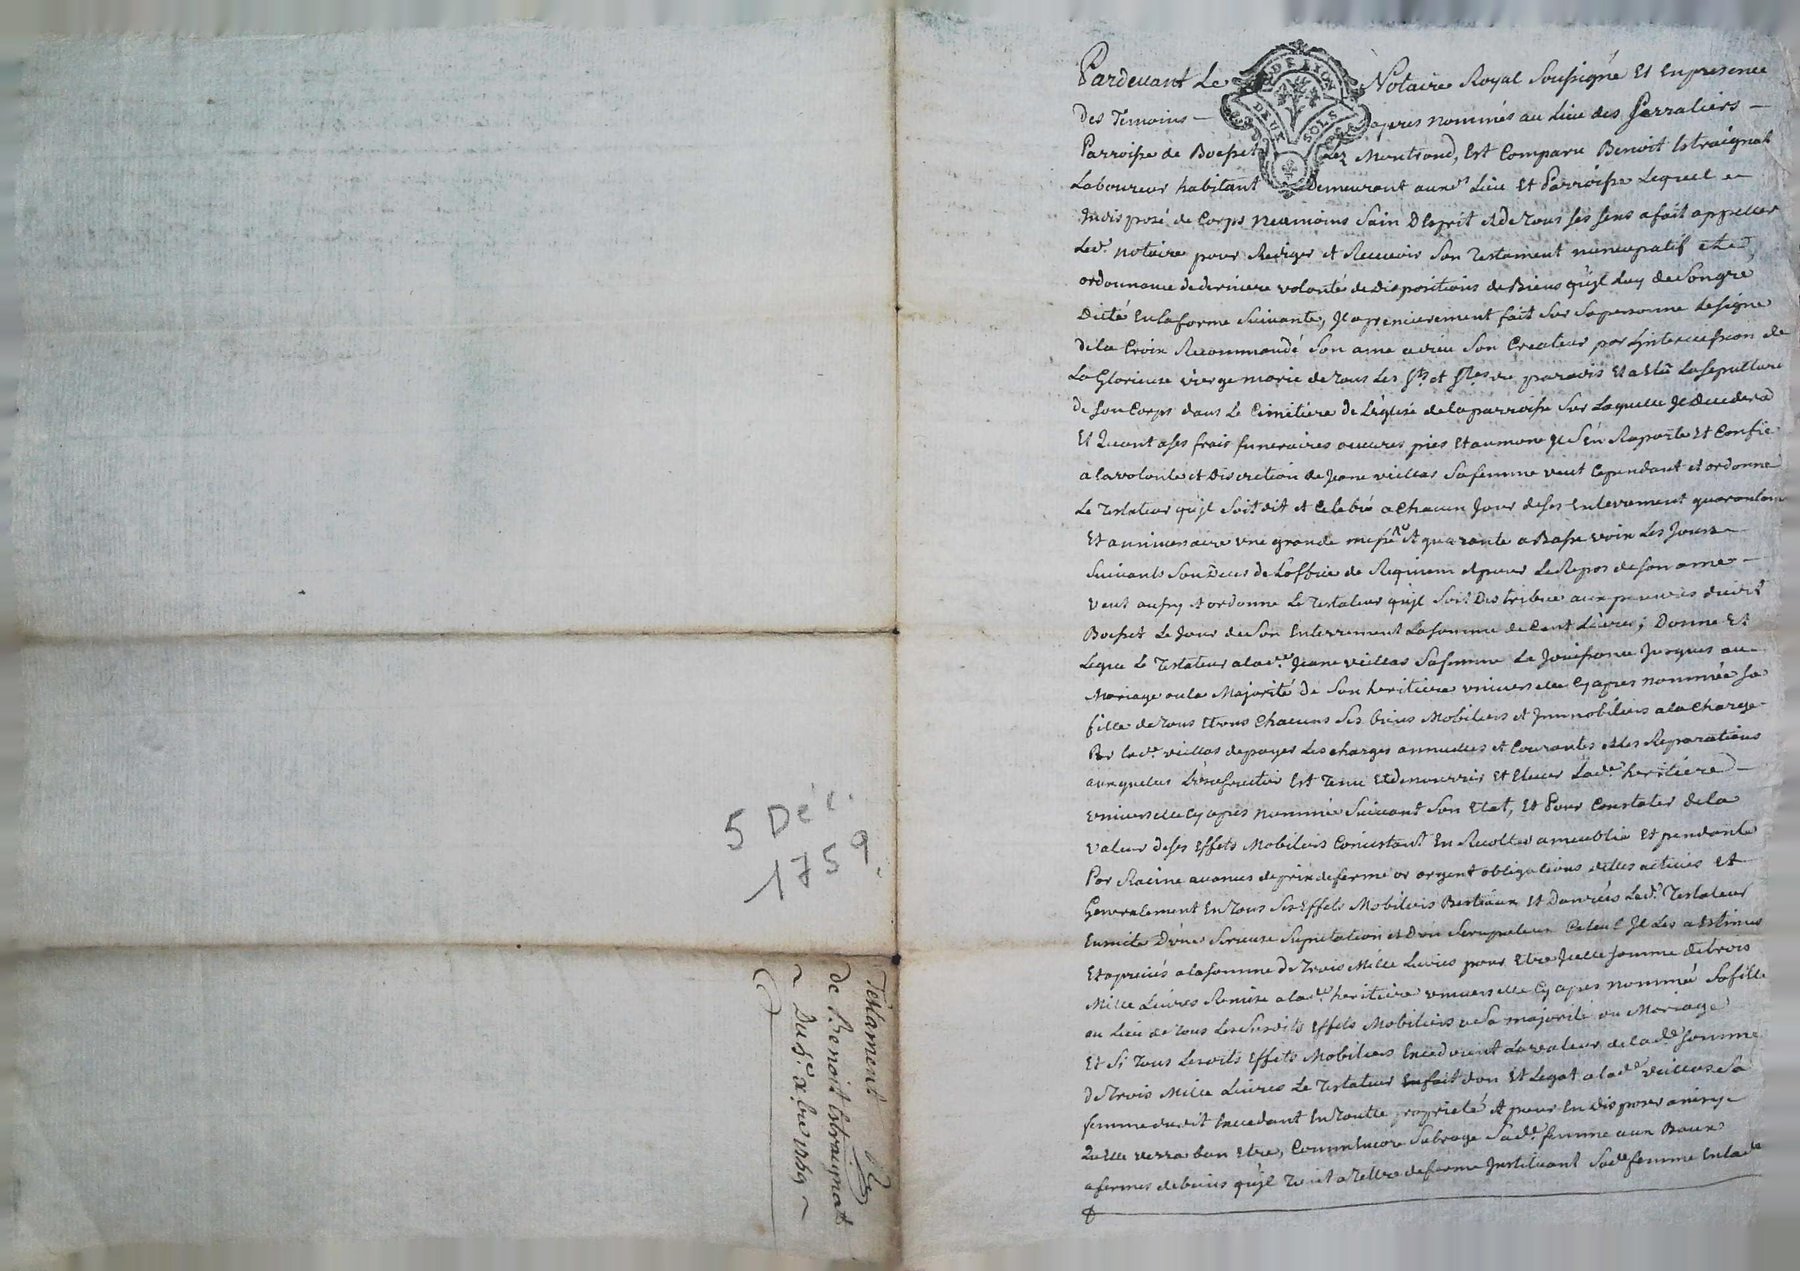 5 Déc.
1759
Testament
de Benoit Estraignat
Du 5.e xbre 1759
Pardevant Le Notaire Royal Soussigné Et En presence
GEN DE LYON
DEUX SOLS
des Temoins apres nommés au Lieu des Perraliers
Parroisse de Boisset Lez Montrond, Est Comparu Benoit Estraignat
Laboureur habitant Demeurant aux.d Lieu Et Parroisse Lequel
Indisposé de Corps Neamoins Sain D'Esprit Et de Tous ses sens a fait appeller
Led. notaire pour Rediger et Recevoir Son Testament nuncupatif et
ordonnance de derniere volonté de Dispositions de Biens qu'jl Luy de Son gré
Dicté En la forme Suivante, Jl a premierement fait Sur Sa personne Le Signe
de la Croix Recommandé Son ame a dieu Son Createur par L'jntercession de
La Glorieuse vierge marie de Tous Les Sts et Stes du paradis Et a Elû La Sepulture
de Son Corps dans Le Cimitiere de L'église de la parroisse Sur Laquelle Jl Decedera
Et Quant a ses frais funeraires oeuvres pies Et aumone Jl S'En Raporte Et Confie
a la volonté et Discretion de Jeane vieillas Sa femme veut Cependant et ordonne
Le Testateur qu'jl Soit dit et Celebré a Chacun Jour de ses Enterrement quarantain
Et anniversaire une grande messe Et quarante a Basse voix Les Jours
Suivants Son Deces de L'office de Requiem et pour Le Repos de Son ame
Veut aussy et ordonne Le Testateur qu'jl Soit Distribué aux pauvres dudit
Boisset Le Jour de Son Enterrement La Somme de Cent Livres; Donne Et
Legue Le Testateur a lad.e Jeane vieillas Sa femme La Jouissance Jusques au
Mariage ou la Majorité de Son heritiere universelle Cy apres nommée Sa
fille de Tous Et Uns Chacuns Ses biens Mobiliers et Immobiliers a la Charge
Par lad.e vieillas de payer Les charges annuelles et Courantes et Les Reparations
auxquelles L'Usufruitier Est Tenu Et de nourrir Et Elever Lad.e heritiere
universelle Cy apres nommée Suivant Son Etat, Et Pour Constater de la
valeur de ses Effets Mobiliers Consistant En Recoltes ameublie Et pendante
Par Racine avances de prix de ferme or argent obligations dettes actives Et
Generalement En Tous Ses Effets Mobiliers Bestiaux Et Danrées Led.t Testateur
Ensuite D'une Serieuse Suputation et D'un Scrupuleux Calcul Jl Les a Estimés
Et apreciés a la Somme de Trois Mille Livres pour Etre Jcelle Somme de trois
Mille Livres Remise a lad.e heritiere universelle Cy apres nommé Sa fille
au Lieu de Tous Les Susdits Effets Mobiliers a Sa majorité ou Mariage
Et Si Tous Lesdits Effets Mobiliers Excedoient La valeur de lad.e Somme
de Trois Mille Livres Le Testateur En fait don Et Legat a lad.e vieillas Sa
femme dudit Excedant En Toutte proprieté et pour En disposer ainsy
Qu'Elle verra bon Etre, Comm'Encore Subroge Sad.e femme aux Baux
a fermes de biens qu'jl Tient a Tittre de ferme Instituant Sad.e femme En lad.e